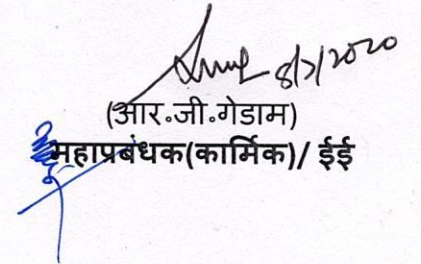 8/7/2020
(आर.जी.गेडाम)
महाप्रबंधक(कार्मिक)/ ईई